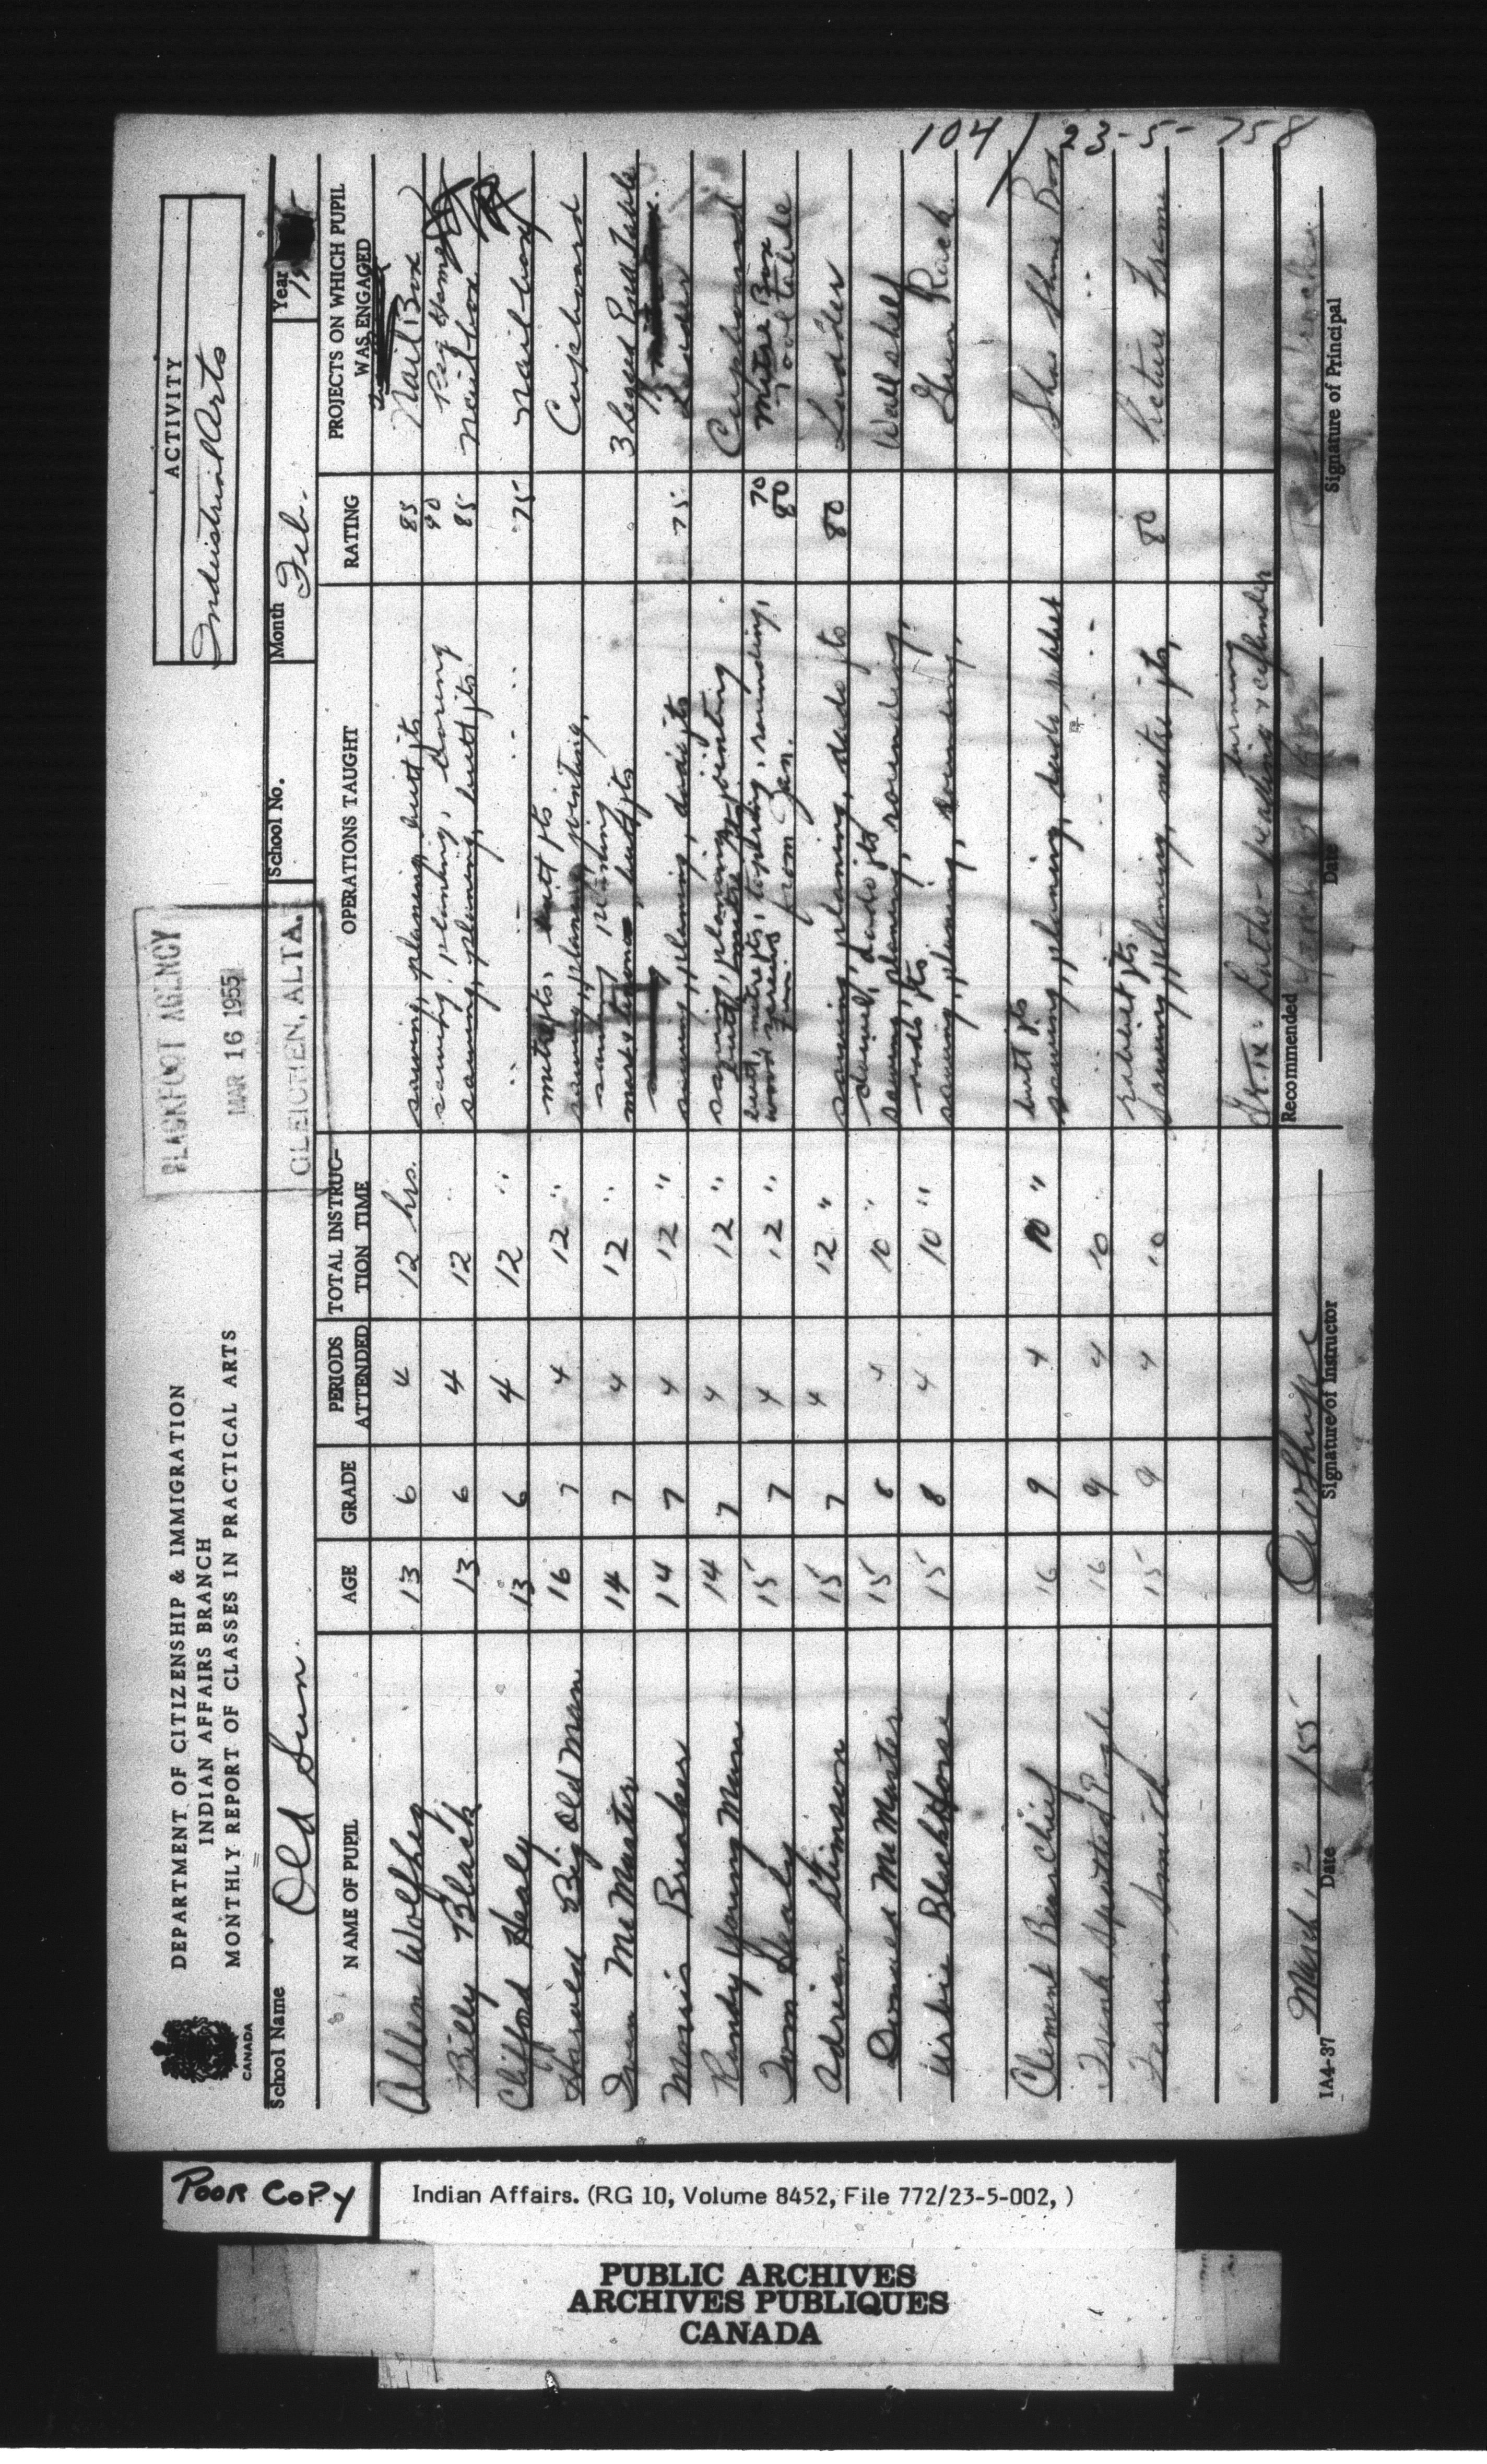 104 / 23-5-758
DEPARTMENT OF CITIZENSHIP & IMMIGRATION
INDIAN AFFAIRS BRANCH
MONTHLY REPORT OF CLASSES IN PRACTICAL ARTS
CANADA
BLACKFOOT AGENCY
MAR 16 1955
GLEICHEN, ALTA.
ACTIVITY
Industrial Arts
School Name Old Sun School No. Month Feb. Year 19
NAME OF PUPIL AGE GRADE PERIODS ATTENDED TOTAL INSTRUCTION TIME OPERATIONS TAUGHT RATING PROJECTS ON WHICH PUPIL WAS ENGAGED
Allen Wolfleg 13 6 4 12 hrs. sawing, planing, butt jts 85 Nail Box
sawing, planing, boring 90 Peg Game
Billy Black 13 6 4 12 " sawing, planing, butt jts 85 Nail box
Clifford Healy 13 6 4 12 " " " " 75 Nail box
mitre jts, butt jts
Harold Big Old Man 16 7 4 12 " sawing, planing, jointing, Cupboard
sawing planing
Ivan McMaster 14 7 4 12 " butt jts 3 legged End Table
Morris Breaker 14 7 4 12 " sawing, planing, dado jts 75 Ladder
Randy Young Man 14 7 4 12 " sawing, planing, jointing Cupboard
butt, mitre jts, rounding, 70 Mitre Box
Tom Healy 15 7 4 12 " 80 Tool table
Adrian Stimson 15 7 4 12 " sawing, planing, dado jts 80 Ladder
dowel, dado jts
Dumas McMaster 15 8 4 10 " sawing, planing, rounding, Wall shelf
dado jts
Kirbie Blackhorse 15 8 4 10 " sawing, planing, rounding, Gun Rack
butt jts
Clement Bearchief 16 9 4 10 " sawing, planing, dado, rabbet Shoe Shine Box
Frank Spotted Eagle 16 9 4 10 " " " "
rabbet jts
Smith 15 9 4 10 sawing, planing, mitre jts, 80 Picture Frame
turning
Gr. IX: Lathe - beading & cylinder
Recommended
March 2/55
IA4-37 Date Signature of Instructor Date Signature of Principal
POOR COPY
Indian Affairs. (RG 10, Volume 8452, File 772/23-5-002, )
PUBLIC ARCHIVES
ARCHIVES PUBLIQUES
CANADA